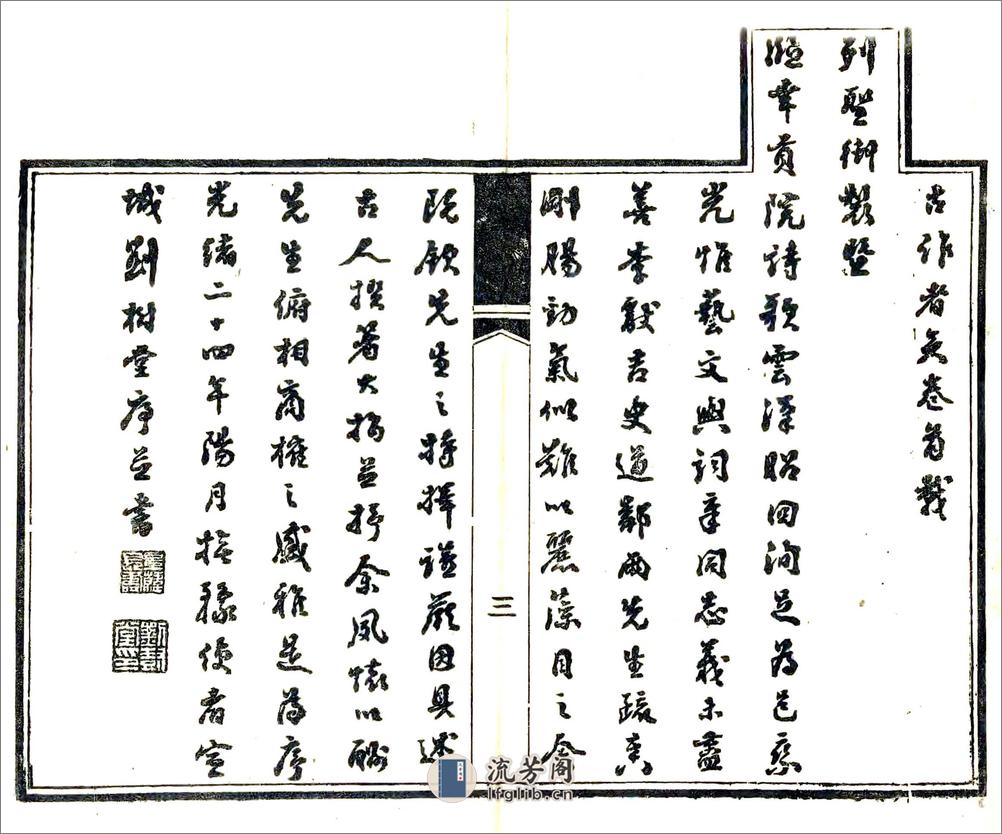 古作者矣卷首載
列聖御製暨
臨幸貢院詩歌雲漢昭回洵足為邑乘
光惟藝文與詞章同志義未盡
善李獻吉史道鄰兩先生疏奏
剛腸勁氣似難以麗藻目之余
三
既欽先生之特擇謹嚴因具述
古人撰著大指並抒余夙懷以酬
先生俯相商榷之盛雅是為序
光緒二十四年陽月撫豫使者宣
城劉樹堂序並書
劉樹堂印
流芳阁
lfglib.cn